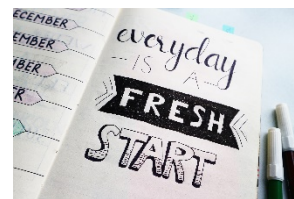 ECEMBER
EMBER
MBER
ER
everyday
IS A
FRESH
START